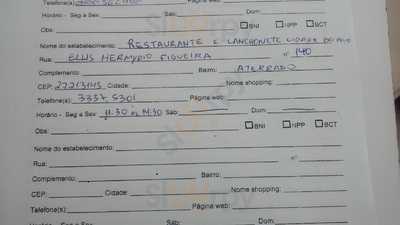 Telefone(s): Página web:
Horário - Seg a Sex: Sáb: Dom:
Obs: BNI NPP BCT
Nome do estabelecimento: RESTAURANTE E LANCHONETE
Rua: ELLIS HERMYDIO FIGUEIRA nº 140
Complemento: Bairro: ATERRADO
CEP: 27213145 Cidade: Nome shopping:
Telefone(s): 3337.5301 Página web:
Horário - Seg a Sex: 11:30 às 14:30 Sáb: Dom:
Obs: BNI NPP BCT
Nome do estabelecimento:
Rua: nº
Complemento: Bairro:
CEP: Cidade: Nome shopping:
Telefone(s): Página web:
Horário - Seg a Sex: Sáb: Dom: